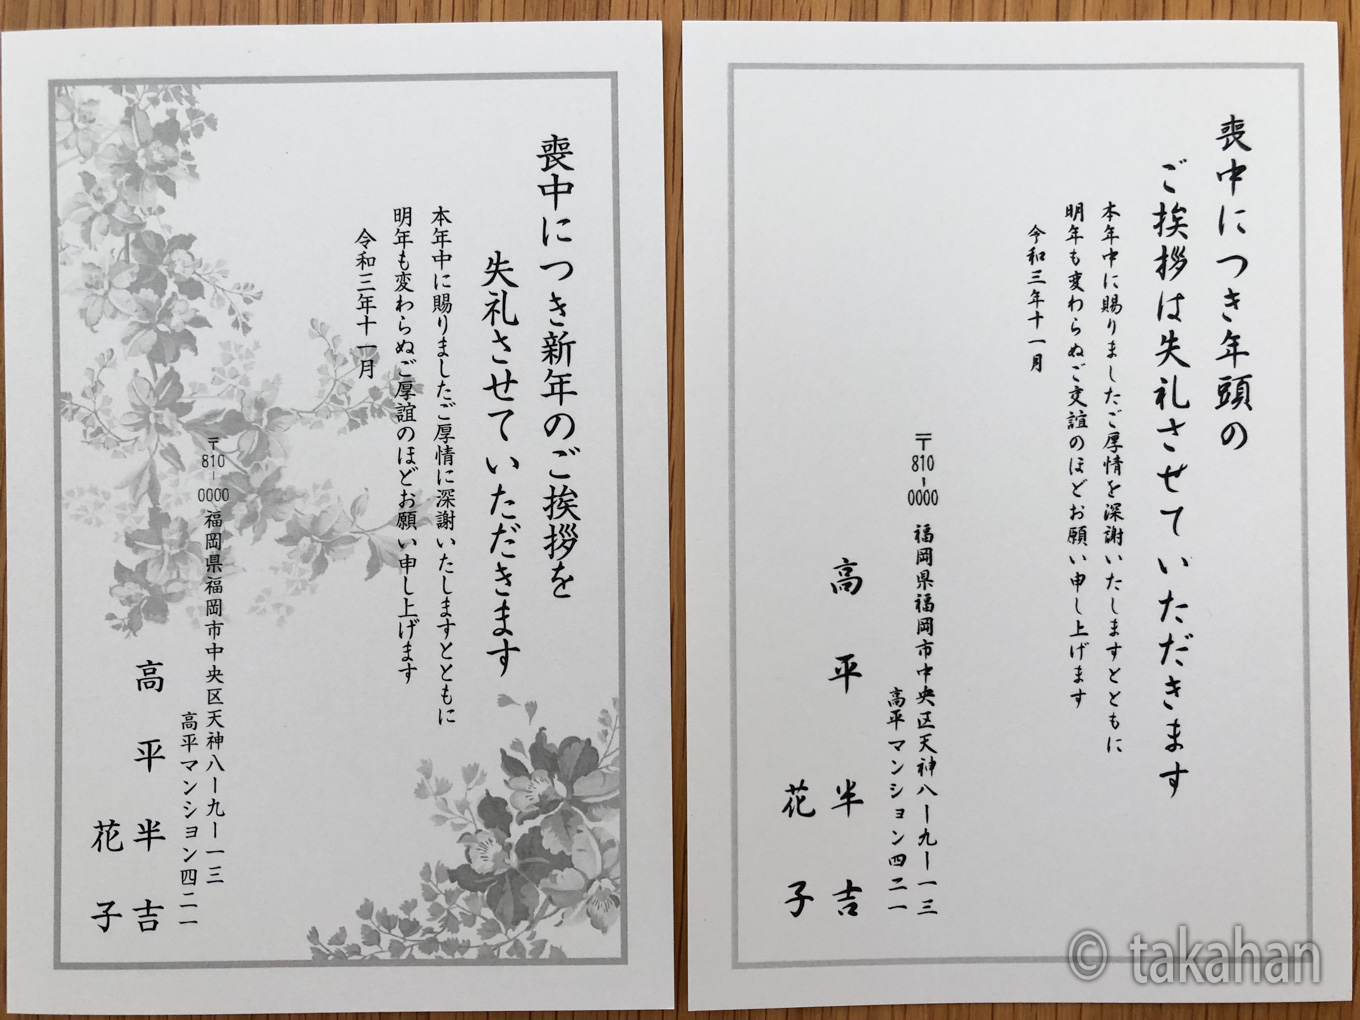 喪中につき新年のご挨拶を
失礼させていただきます
本年中に賜りましたご厚情に深謝いたしますとともに
明年も変わらぬご厚誼のほどお願い申し上げます
令和三年十一月
〒810-0000 福岡県福岡市中央区天神八ー九ー一三
高平マンション四二一
高平半吉
花子
喪中につき年頭の
ご挨拶は失礼させていただきます
本年中に賜りましたご厚情を深謝いたしますとともに
明年も変わらぬご交誼のほどお願い申し上げます
令和三年十一月
〒810-0000 福岡県福岡市中央区天神八ー九ー一三
高平マンション四二一
高平半吉
花子
© takahan